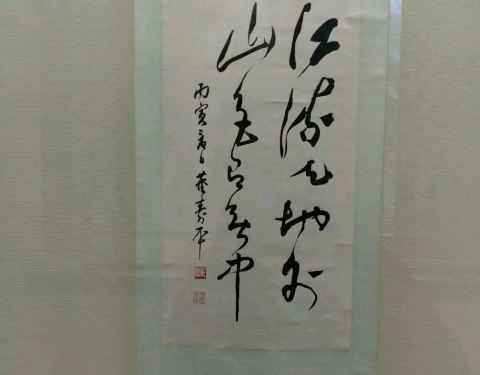 江流天地外
山色有无中
丙寅春日董寿平